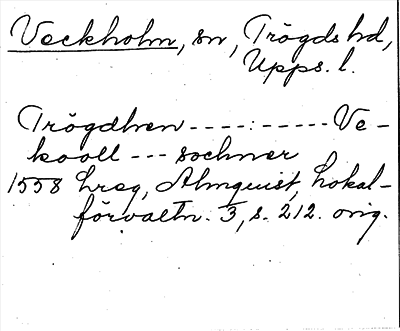 Veckholm, sn, Trögds hd,
Upps. l.
Trögdhren ----:----- Ve-
kooll --- sochner
1558 hreg, Almquist, Lokal-
förvaltn. 3, s. 212. orig.